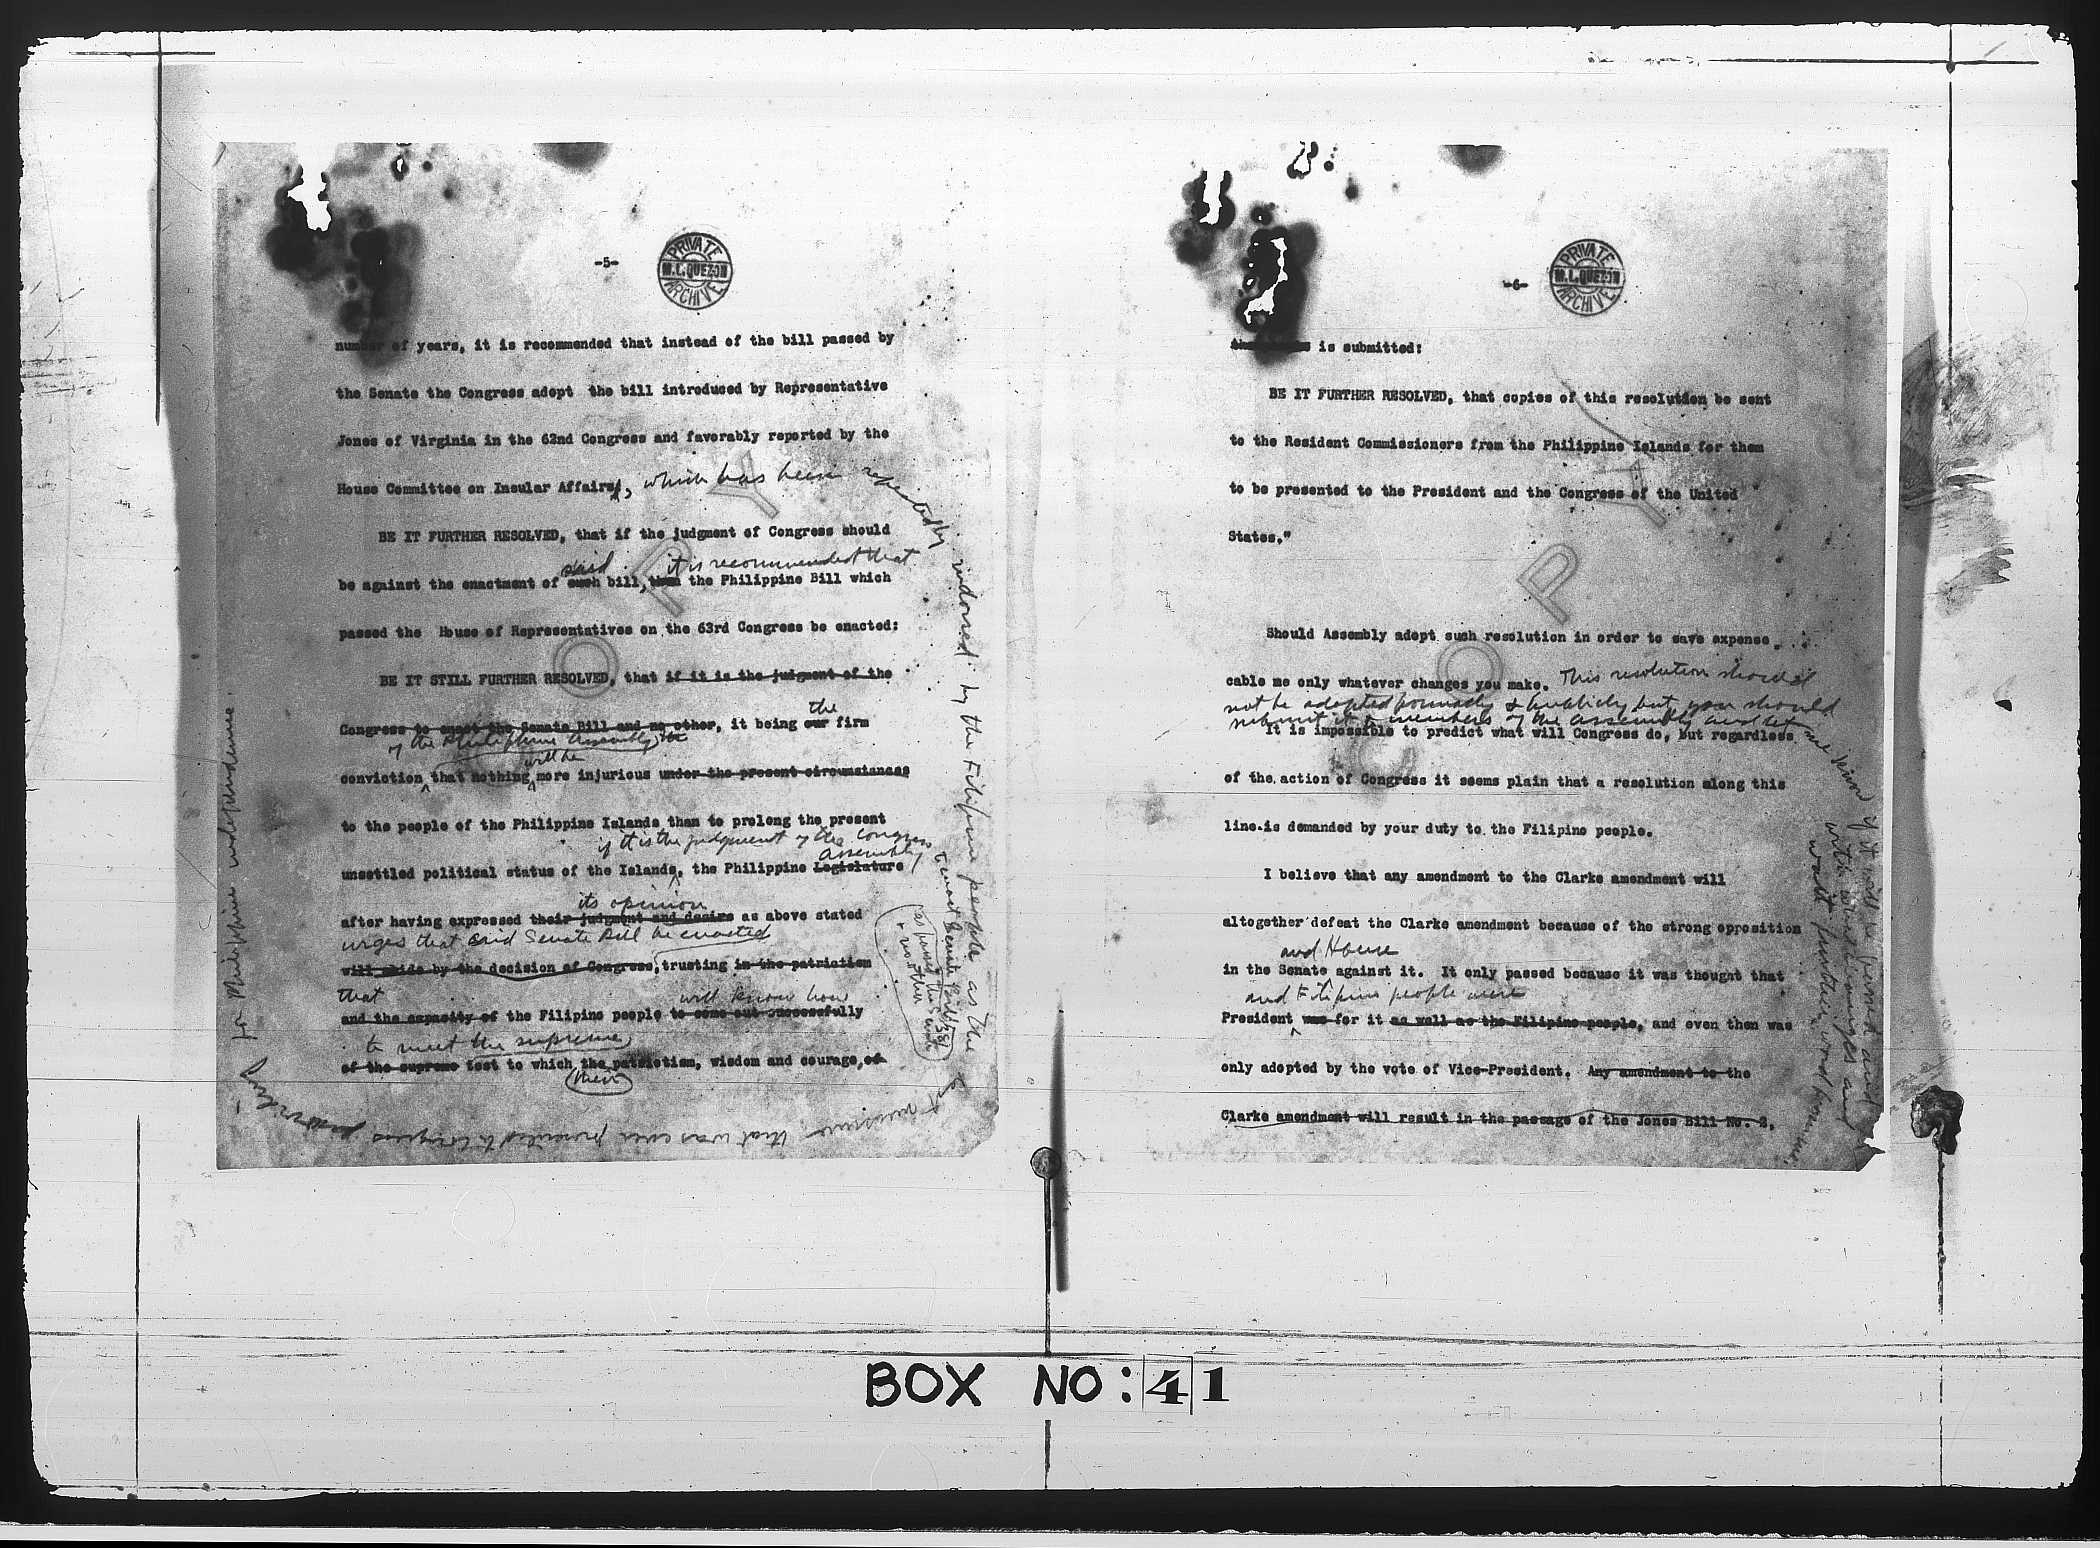 -5-
PRIVATE
M.L.QUEZON
ARCHIVE
number of years, it is recommended that instead of the bill passed by
the Senate the Congress adopt the bill introduced by Representative
Jones of Virginia in the 62nd Congress and favorably reported by the
House Committee on Insular Affairs, which has been repeatedly
indorsed by the Filipino people as the
that was ever presented to Congress
for Philippine independence.
BE IT FURTHER RESOLVED, that if the judgment of Congress should
said it is recommended that
be against the enactment of such bill, then the Philippine Bill which
passed the House of Representatives on the 63rd Congress be enacted:
BE IT STILL FURTHER RESOLVED, that if it is the judgment of the
the
Congress to enact the Senate Bill and no other, it being our firm
of the Philippine Assembly
will be
conviction that nothing more injurious under the present circumstances
to the people of the Philippine Islands than to prolong the present
if it is the judgment of the Congress
to enact Senate Bill 381
as passed the Senate
& no other
Assembly
unsettled political status of the Islands, the Philippine Legislature
its opinion
after having expressed their judgment and desire as above stated
urges that said Senate Bill be enacted
will abide by the decision of Congress, trusting in the patriotism
that will know how
and the capacity of the Filipino people to come out successfully
to meet the supreme
of the supreme test to which the patriotism, wisdom and courage, of
their
COPY
-6-
PRIVATE
M.L.QUEZON
ARCHIVE
is submitted:
BE IT FURTHER RESOLVED, that copies of this resolution be sent
to the Resident Commissioners from the Philippine Islands for them
to be presented to the President and the Congress of the United
States."
Should Assembly adopt such resolution in order to save expense
cable me only whatever changes you make. This resolution should
not be adopted formally & publicly but you should
submit it to members of the assembly and let me know
if it will be passed and
with what changes and
wait further word from me.
It is impossible to predict what will Congress do, but regardless
of the action of Congress it seems plain that a resolution along this
line is demanded by your duty to the Filipino people.
I believe that any amendment to the Clarke amendment will
altogether defeat the Clarke amendment because of the strong opposition
and House
in the Senate against it. It only passed because it was thought that
and Filipino people were
President was for it as well as the Filipino people, and even then was
only adopted by the vote of Vice-President. Any amendment to the
Clarke amendment will result in the passage of the Jones Bill No. 2.
COPY
BOX NO: 41